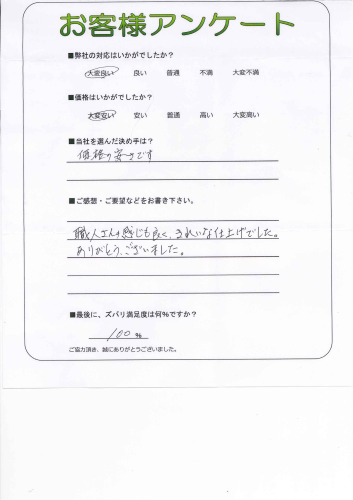 お客様アンケート
■弊社の対応はいかがでしたか?
大変良い 良い 普通 不満 大変不満
■価格はいかがでしたか?
大変安い 安い 普通 高い 大変高い
■当社を選んだ決め手は?
価格の安さです
■ご感想・ご要望などをお書き下さい。
職人さんの感じも良く、きれいな仕上げでした。
ありがとうございました。
■最後に、ズバリ満足度は何%ですか?
100%
ご協力頂き、誠にありがとうございました。